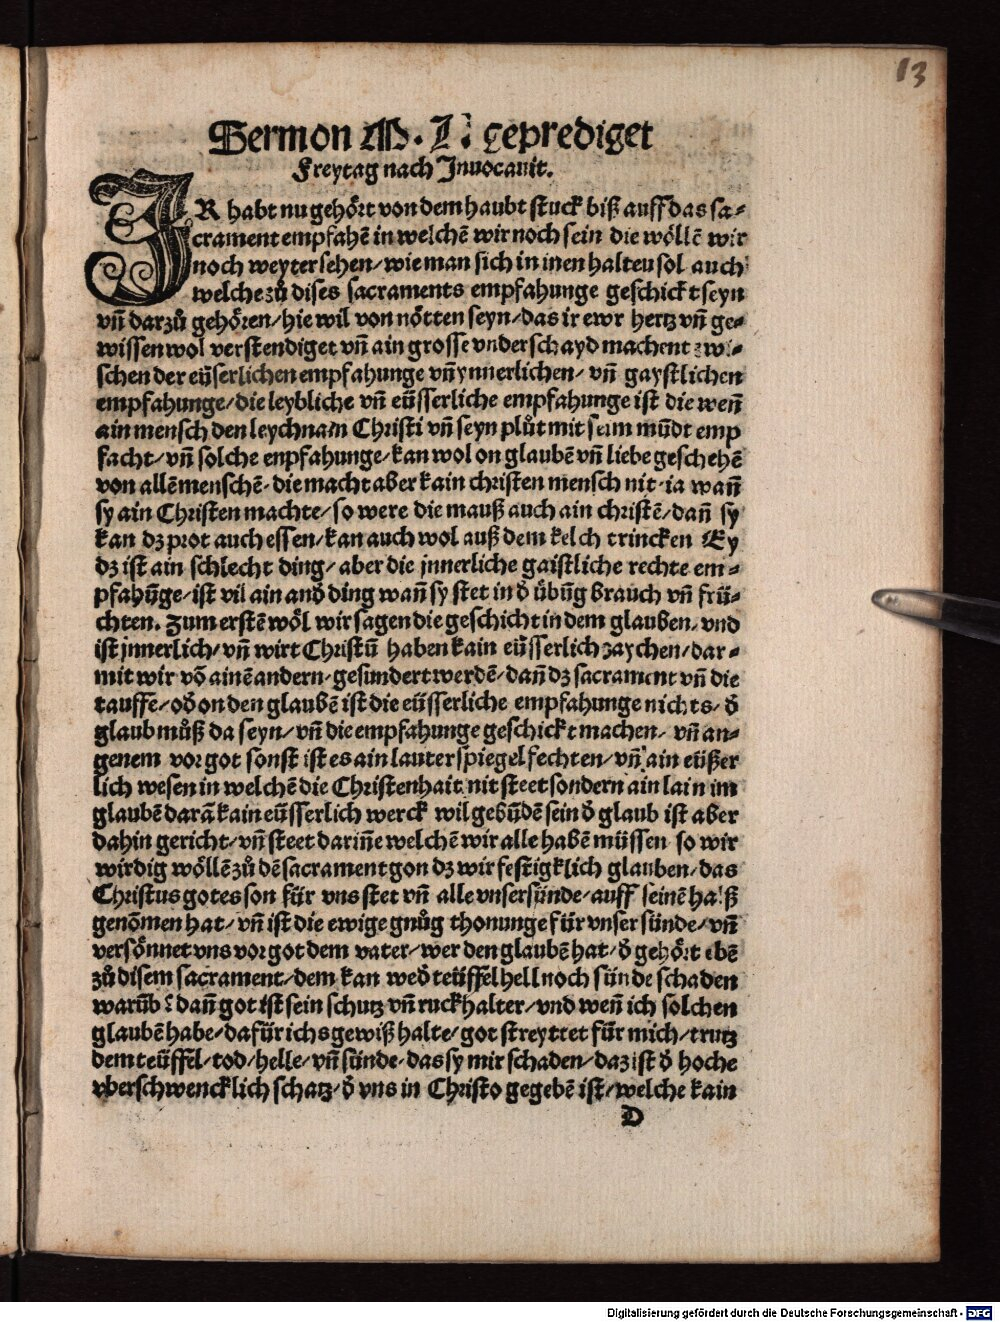 13
Sermon M. L. geprediget
Freytag nach Inuocauit.
IR habt nu gehöꝛt von dem haubt stuck biß auff das sa⸗
crament empfahē in welchē wir noch sein die wöllē wir
noch weyter sehen/ wie man sich in inen halteu sol auch
welche zů dises sacraments empfahunge geschickt seyn
vñ darzů gehöꝛen/ hie wil von nötten seyn/ das ir ewr hertz vñ ge⸗
wissen wol verstendiget vñ ain grosse vnderschayd machent zwi⸗
schen der eüserlichen empfahunge vñ ynnerlichen/ vñ gaystlichen
empfahunge/ die leybliche vñ eüsserliche empfahunge ist die weñ
ain mensch den leychnam Christi vñ seyn plůt mit seim mūdt emp
facht/ vñ solche enpfahunge/ kan wol on glaubē vñ liebe geschehē
von allē menschē/ die macht aber kain christen mensch nit/ ia wañ
sy ain Christen machte/ so were die mauß auch ain christē/ dañ sy
kan dz prot auch essen/ kan auch wol auß dem kelch trincken Ey
dz ist ain schlecht ding/ aber die jnnerliche gaistliche rechte em⸗
pfahūge/ ist vil ain andď ding wañ sy stet in ď übūg brauch vñ frü⸗
chten. Zum erstē wöl wir sagen die geschicht in dem glauben/ vnd
ist jnnerlich/ vñ wirt Christū haben kain eüsserlich zaychen/ dar⸗
mit wir vō ainē andern/ gesundert werdē/ dañ dz sacrament vñ die
tauffe/ oď on den glaubē ist die eüsserliche empfahunge nichts/ ď
glaub můß da seyn/ vñ die empfahunge geschickt machen/ vñ an⸗
genem vor got sonst ist es ain lauter spiegelfechten/ vñ ain eüßer
lich wesen in welchē die Christenhait nit steet sondern ain lain im
glaubē darā kain eüsserlich werck wil gebūdē sein ď glaub ist aber
dahin gericht/ vñ steet dariñe welchē wir alle habē müssen so wir
wirdig wöllē zů dē sacrament gon dz wir festigklich glauben/ das
Christus gotes son für vns stet vñ alle vnser sünde/ auff seinē halß
genōmen hat/ vñ ist die ewige gnůg thonunge für vnser sünde/ vñ
versönnet vns vor got dem vater/ wer den glaubē hat/ ď gehöꝛt ebē
zů disem sacrament/ dem kan weď teüffel hell noch sünde schaden
warūb? dañ got ist sein schutz vñ ruckhalter/ vnd weñ ich solchen
glaubē habe/ dafür ichs gewiß halte/ got streyttet für mich/ trutz
dem teüffel/ tod/ helle/ vñ sünde/ das sy mir schaden/ daz ist ď hoche
vberschwencklich schatz/ ď vns in Christo gegebē ist/ welche kain
D
Digitalisierung gefördert durch die Deutsche Forschungsgemeinschaft - DFG